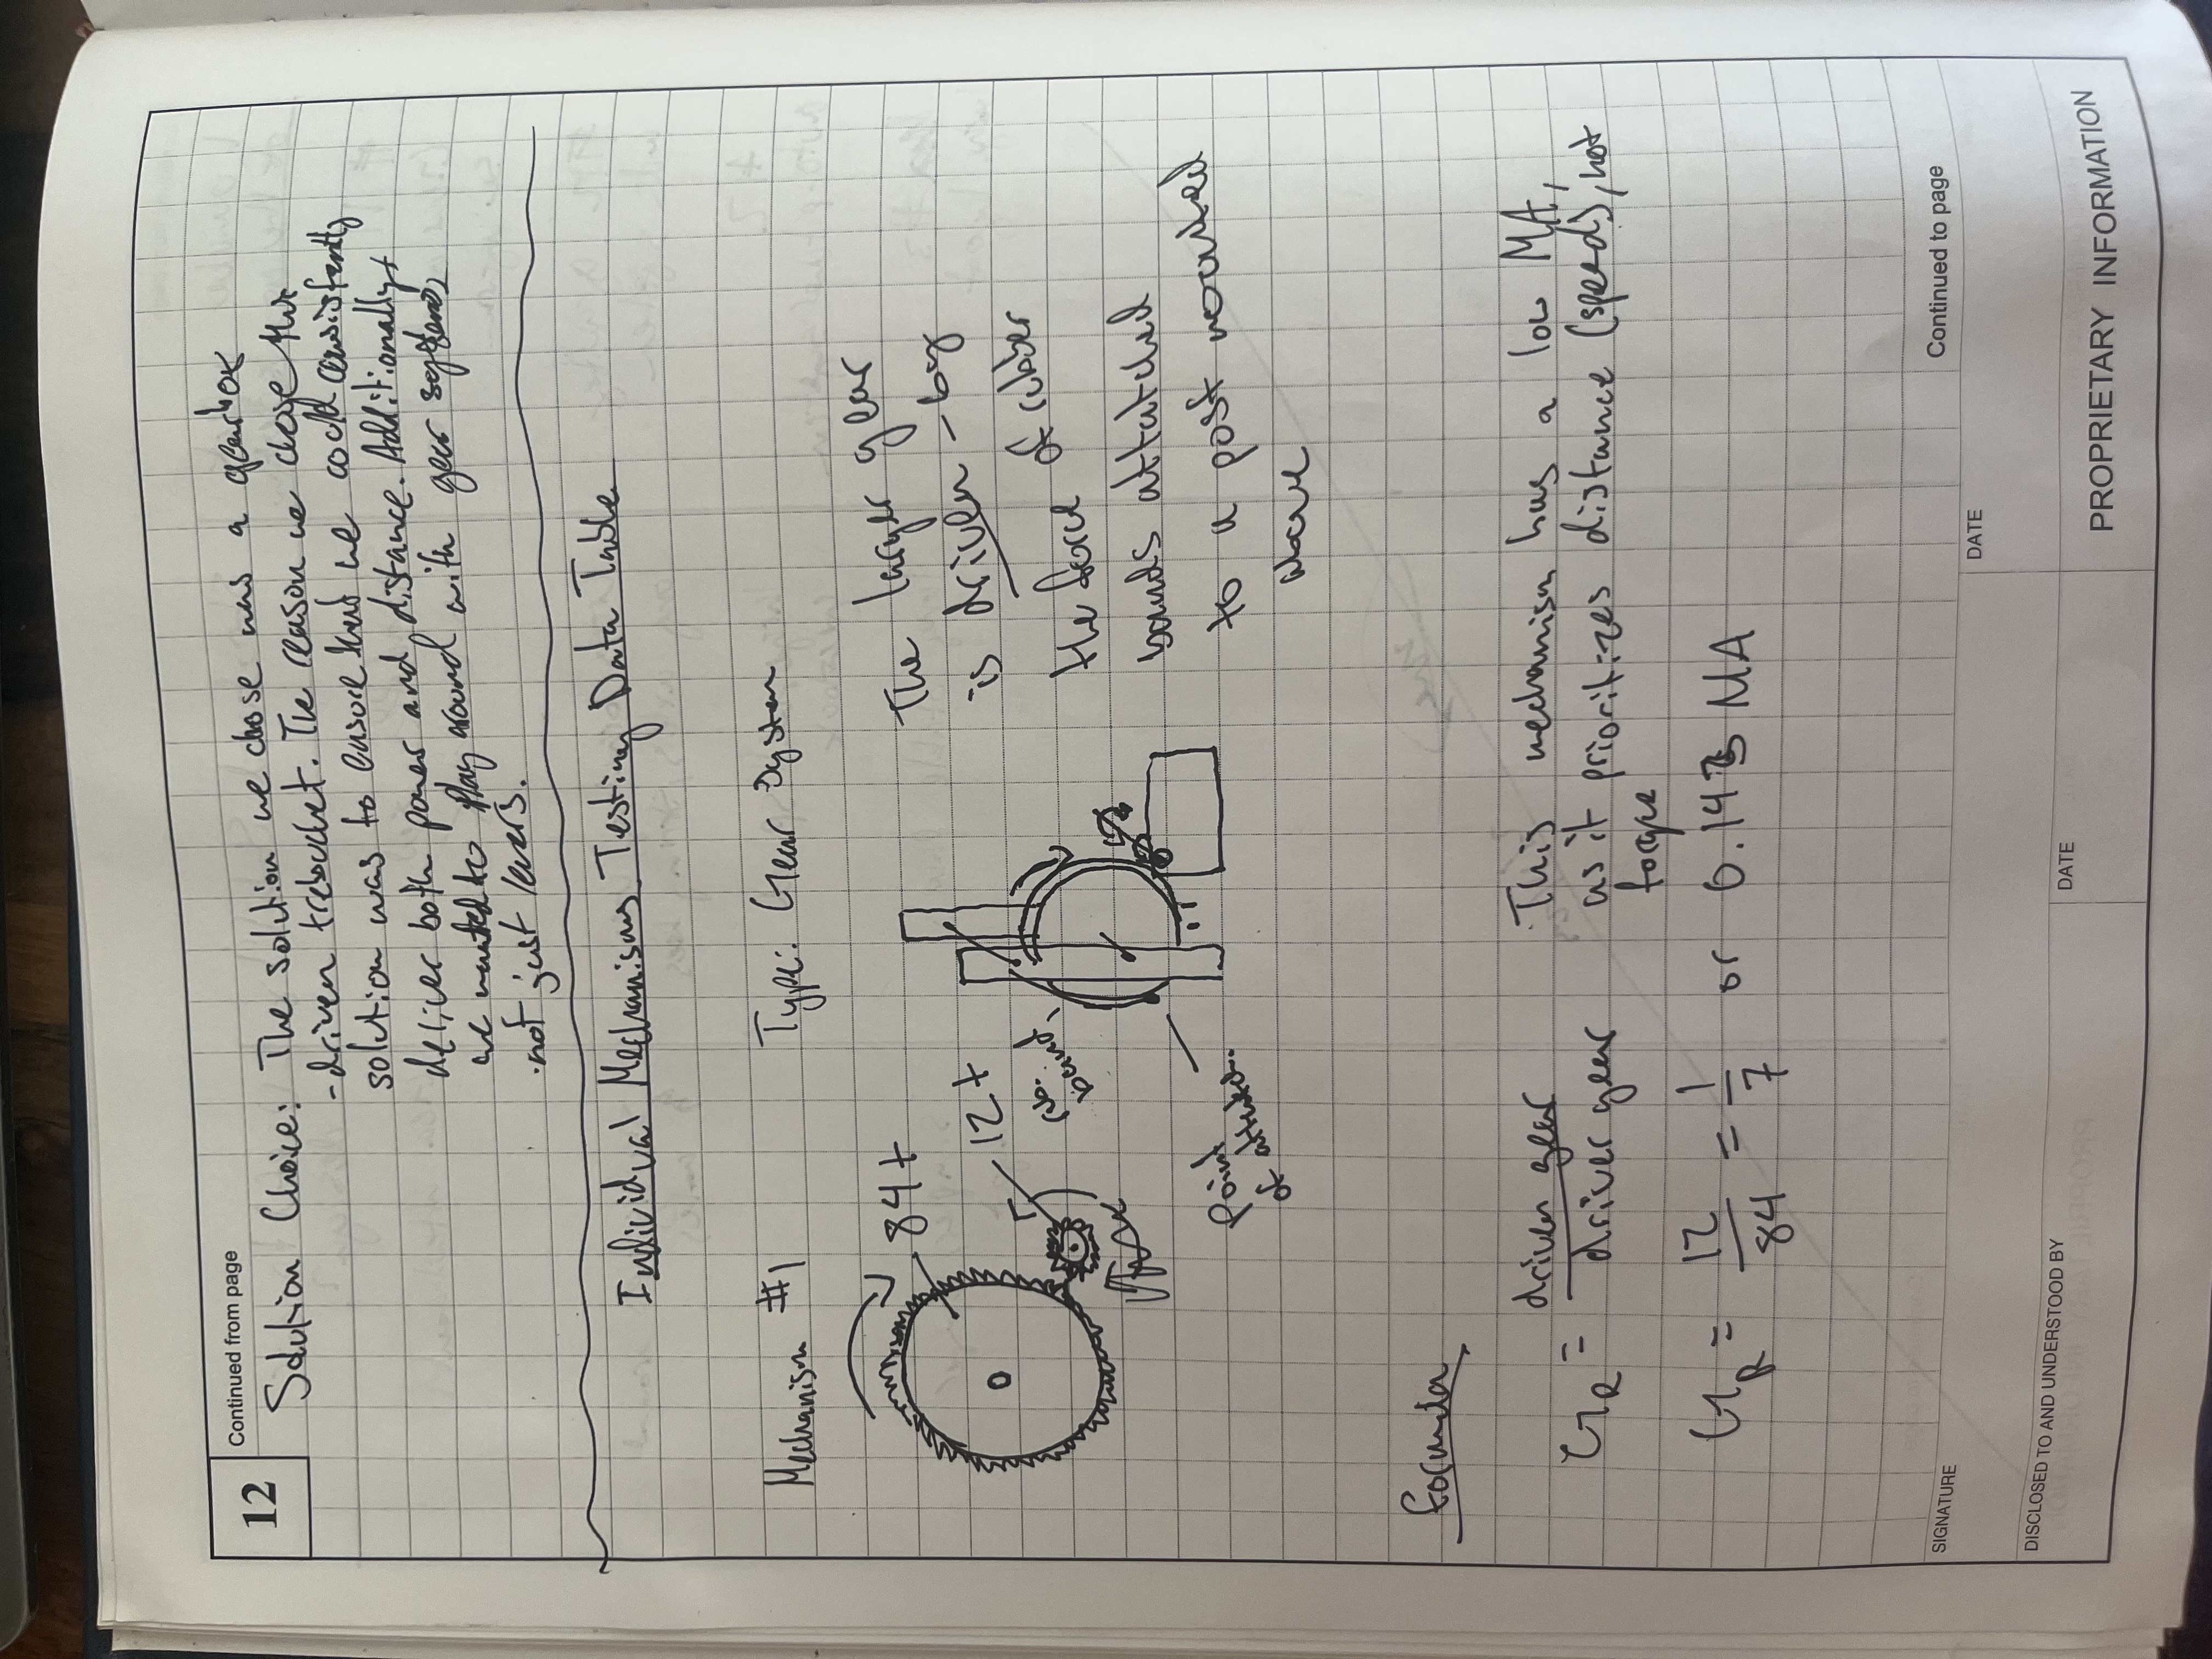 12
Continued from page
Solution Choice: The solution we chose was a gearbox
-driven trebuchet. The reason we chose this
solution was to ensure that we could consistently
deliver both power and distance. Additionally,
we wanted to play around with gear systems,
not just levers.
Individual Mechanisms Testing Data Table
Mechanism #1
Type: Gear System
84t
12t
rub.
band,
Point
of attatch.
The larger gear
is driven - by
the force of rubber
bands attatched
to a post mounted
above
Formula
GR = driven gear
driver gear
This mechanism has a low MA,
as it prioritizes distance (speed), not
torque
GR = 12/84 = 1/7 or 0.143 MA
Continued to page
SIGNATURE
DATE
DISCLOSED TO AND UNDERSTOOD BY
DATE
PROPRIETARY INFORMATION